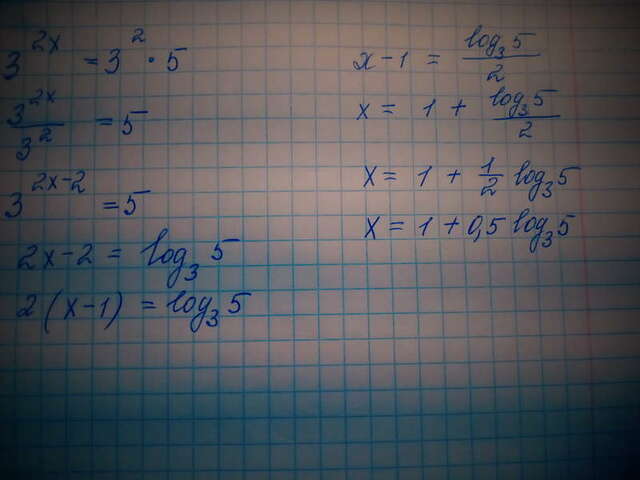 3^{2x} = 3^2 · 5
\frac{3^{2x}}{3^2} = 5
3^{2x-2} = 5
2x-2 = log_3 5
2(x-1) = log_3 5
x-1 = \frac{log_3 5}{2}
x = 1 + \frac{log_3 5}{2}
x = 1 + \frac{1}{2} log_3 5
x = 1 + 0,5 log_3 5